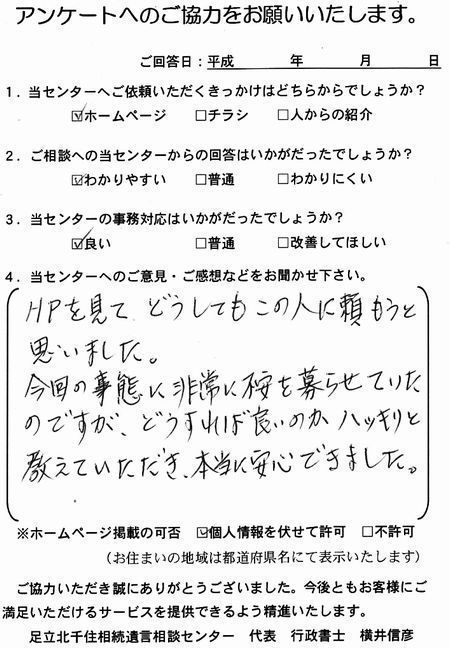 アンケートへのご協力をお願いいたします。
ご回答日：平成　　　年　　　月　　　日
１．当センターへご依頼いただくきっかけはどちらからでしょうか？
☑ホームページ　□チラシ　□人からの紹介
２．ご相談への当センターからの回答はいかがだったでしょうか？
☑わかりやすい　□普通　□わかりにくい
３．当センターの事務対応はいかがだったでしょうか？
☑良い　□普通　□改善してほしい
４．当センターへのご意見・ご感想などをお聞かせ下さい。
HPを見て どうしてもこの人に頼もうと
思いました。
今回の事態に非常に不安を募らせていた
のですが、どうすれば良いのか ハッキリと
教えていただき、本当に安心できました。
※ホームページ掲載の可否　☑個人情報を伏せて許可　□不許可
（お住まいの地域は都道府県名にて表示いたします）
ご協力いただき誠にありがとうございました。今後ともお客様にご
満足いただけるサービスを提供できるよう精進いたします。
足立北千住相続遺言相談センター　代表　行政書士　横井信彦